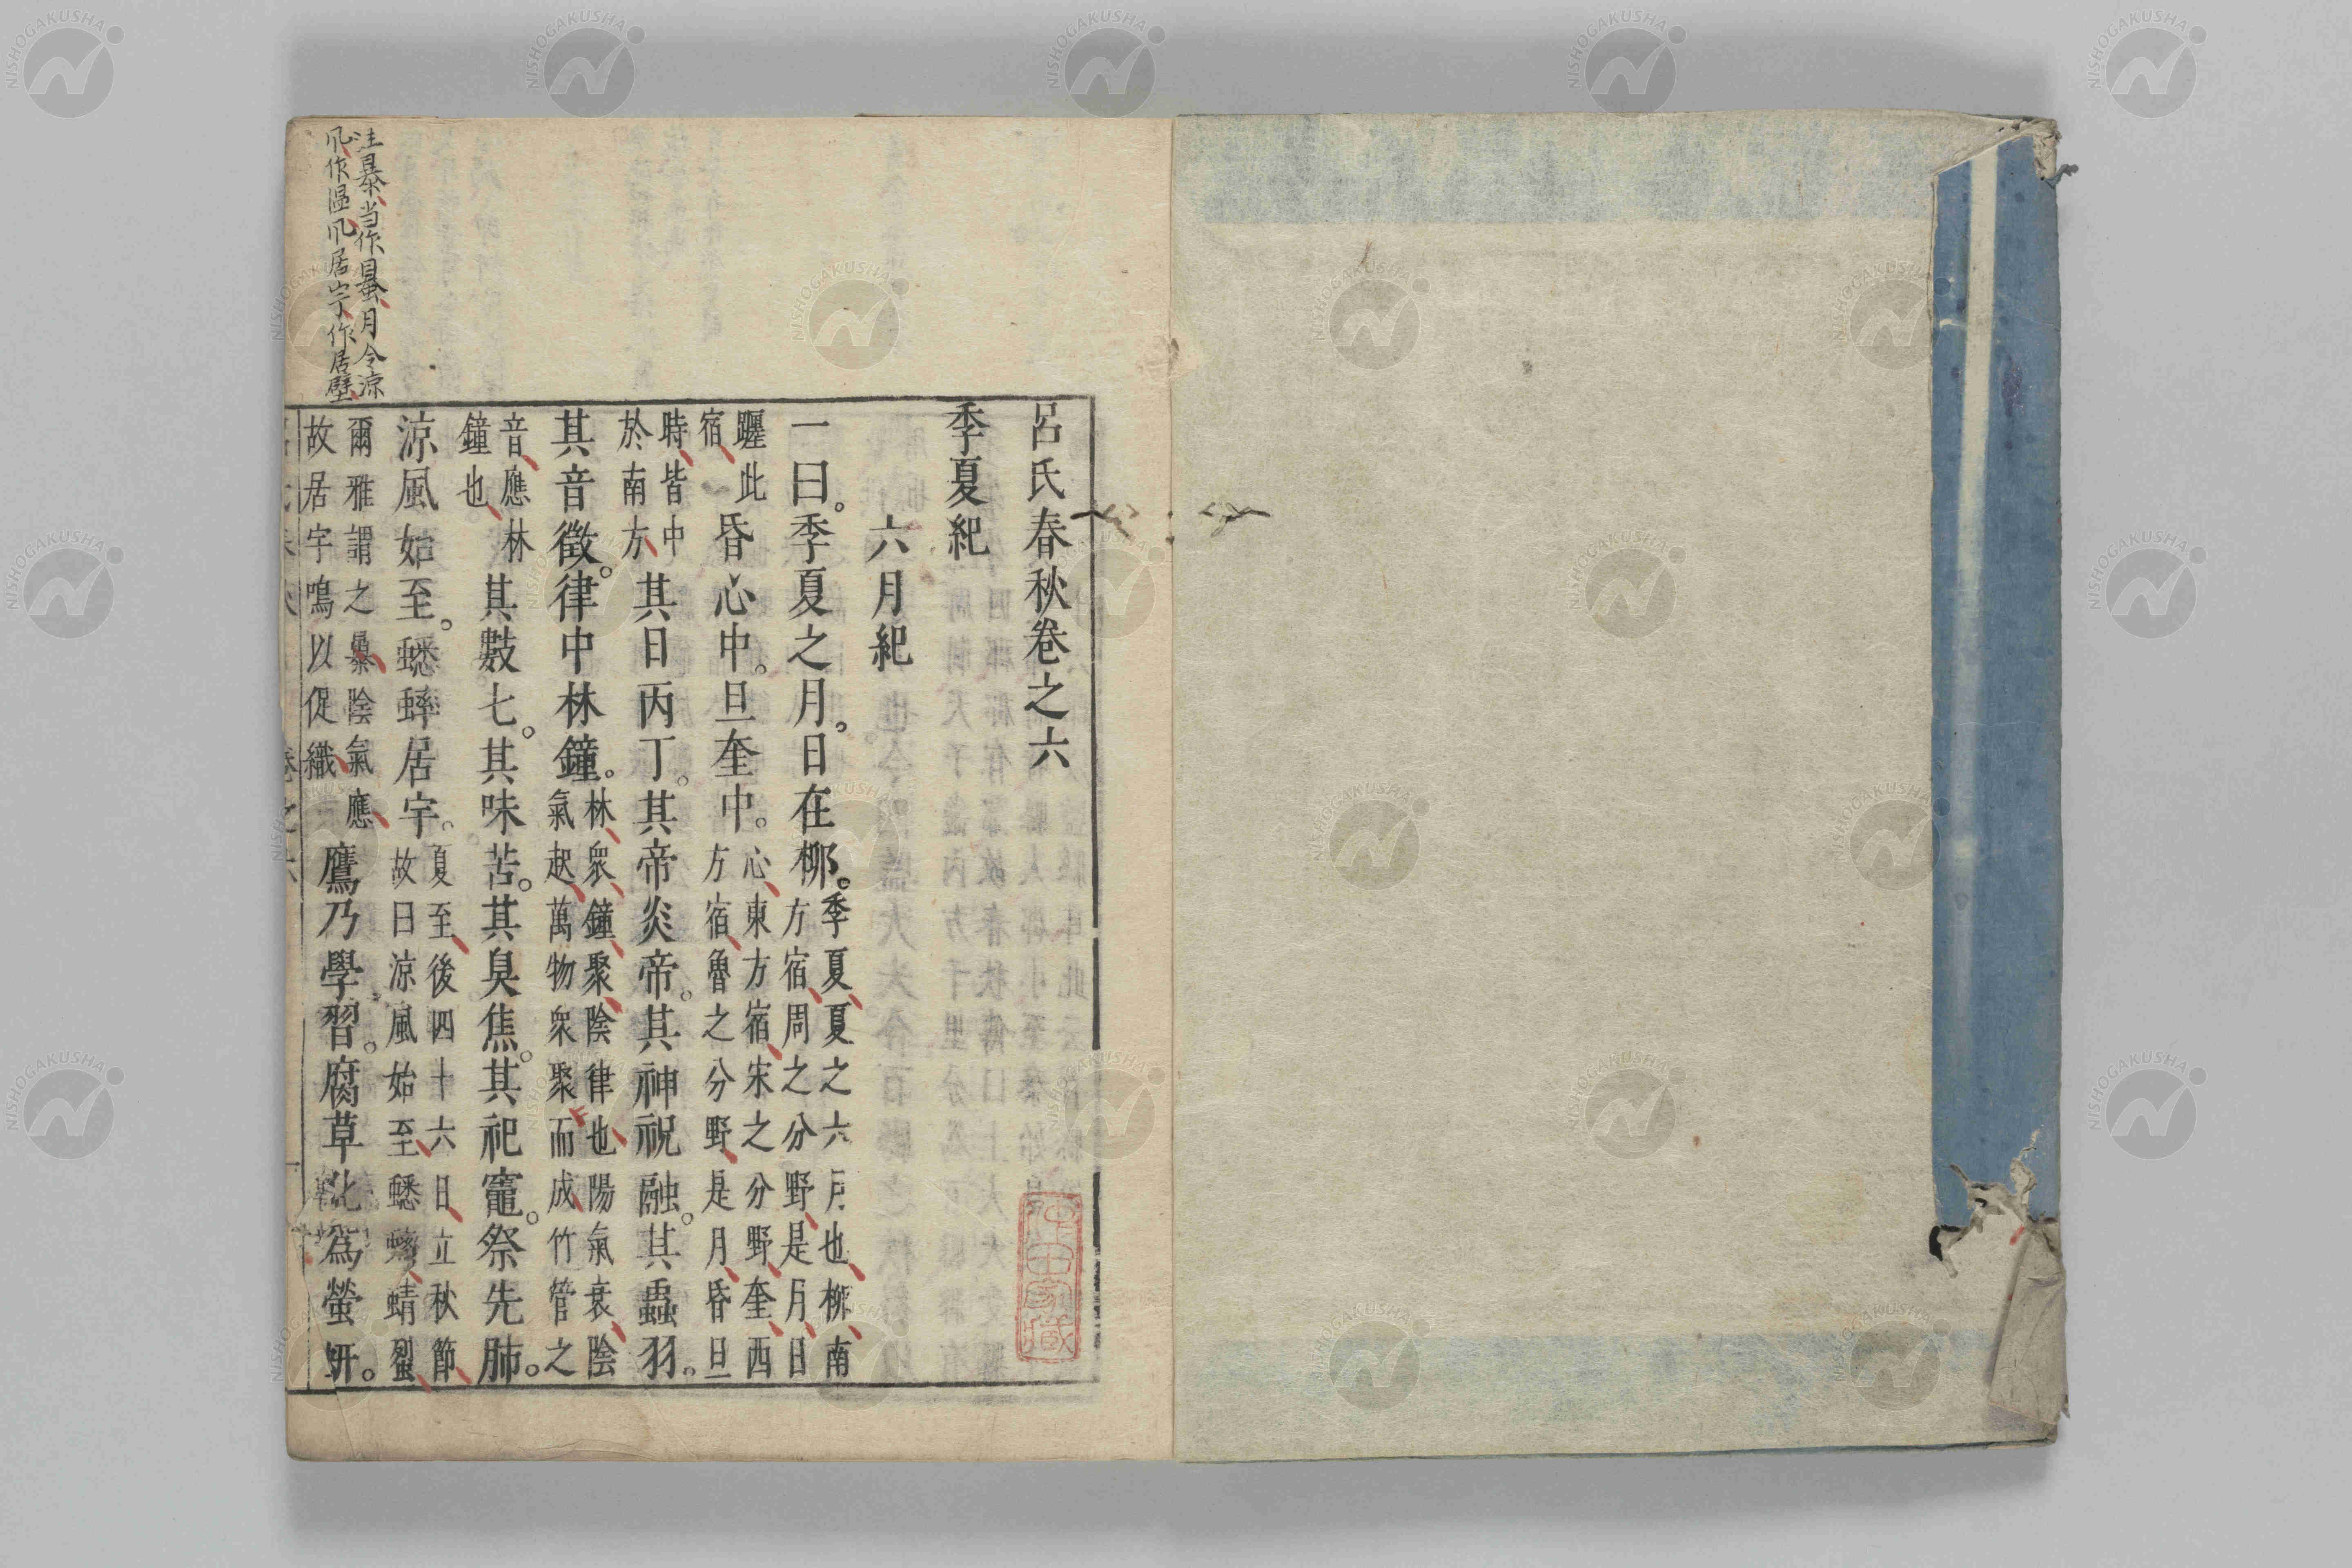 呂氏春秋卷之六
季夏紀
六月紀
一曰。季夏之月。日在柳。季夏夏之六月也柳南
方宿周之分野是月日
躔此
宿
昏心中。旦奎中。心東方宿宋之分野奎西
方宿魯之分野是月昏旦
時皆中
於南方
其日丙丁。其帝炎帝。其神祝融。其蟲羽。
其音徵。律中林鐘。林衆鐘聚陰律也陽氣衰陰
氣起萬物衆聚而成竹管之
音應林
鐘也
其數七。其味苦。其臭焦。其祀竈。祭先肺。
涼風始至。蟋蟀居宇。夏至後四十六日立秋節
故曰涼風始至蟋蟀蜻蛚
爾雅謂之陰氣應
故居宇鳴以促織
鷹乃學習。腐草化爲螢蚈。
注暴当作月令涼
風作温風居宇作居壁
田家藏
NISHOGAKUSHA